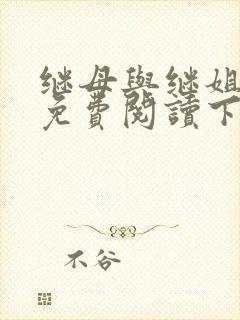 继母與继姐
免費閱讀下
不谷